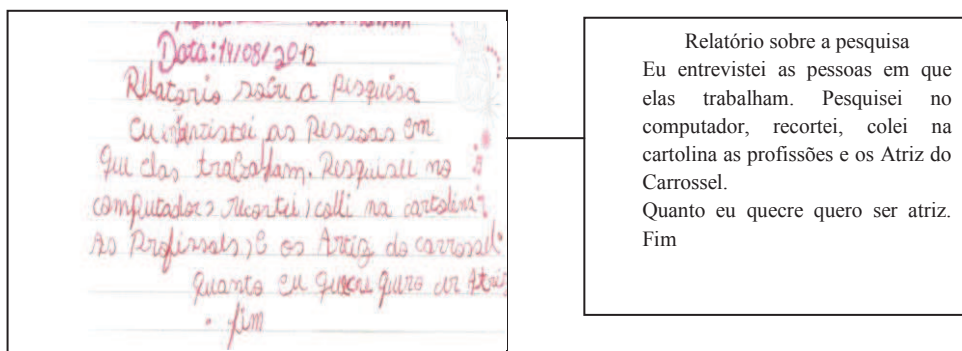 Data: 14/08/2012
Relatorio sobre a pesquisa
Eu as Pessoas em
que elas trabalham. Pesquisei no
computador, recortei, colei na cartolina
As Profissols, E os Artiz do carrossel.
Quanto eu quecre quero ser Atriz
fim
Relatório sobre a pesquisa
Eu entrevistei as pessoas em que
elas trabalham. Pesquisei no
computador, recortei, colei na
cartolina as profissões e os Atriz do
Carrossel.
Quanto eu quecre quero ser atriz.
Fim